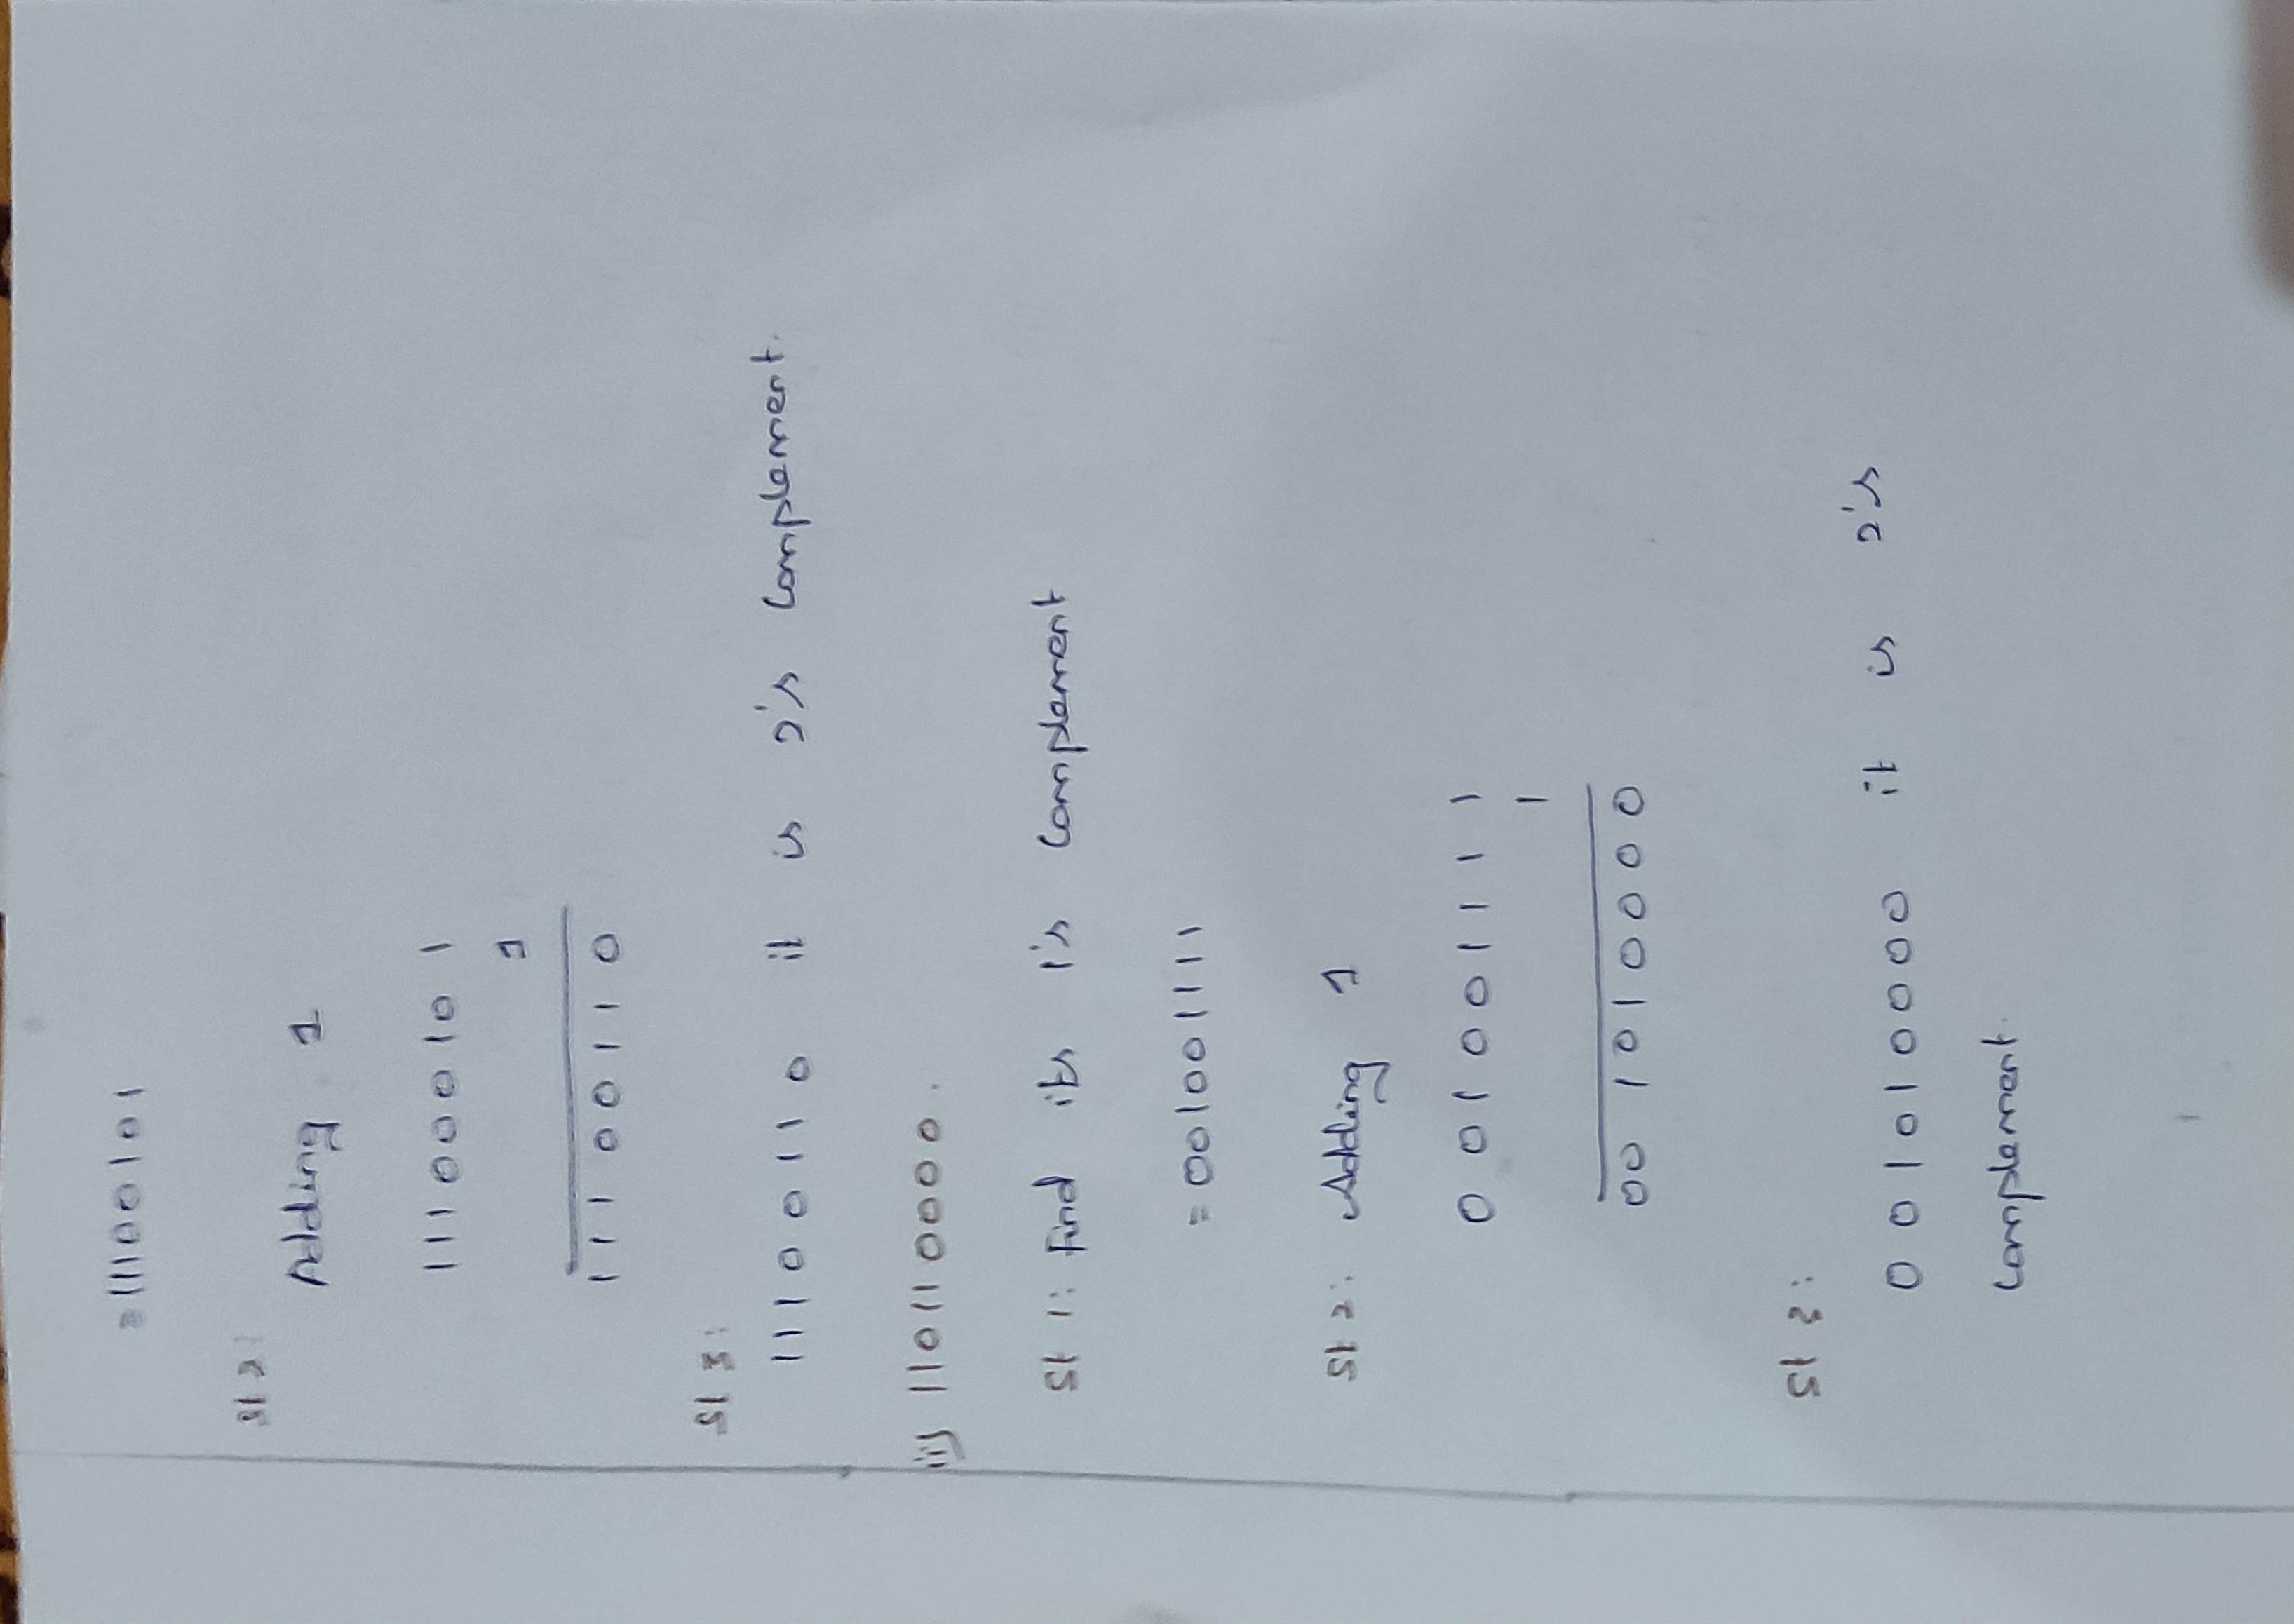 = 11100101
St 2:
Adding 1
111000101
1
11100110
St 3:
11100110 it is 2's complement.
ii) 110110000.
St 1: Find its 1's complement
= 001001111
St 2: Adding 1
001001111
1
001010000
St 3:
001010000 it is 2's
complement.